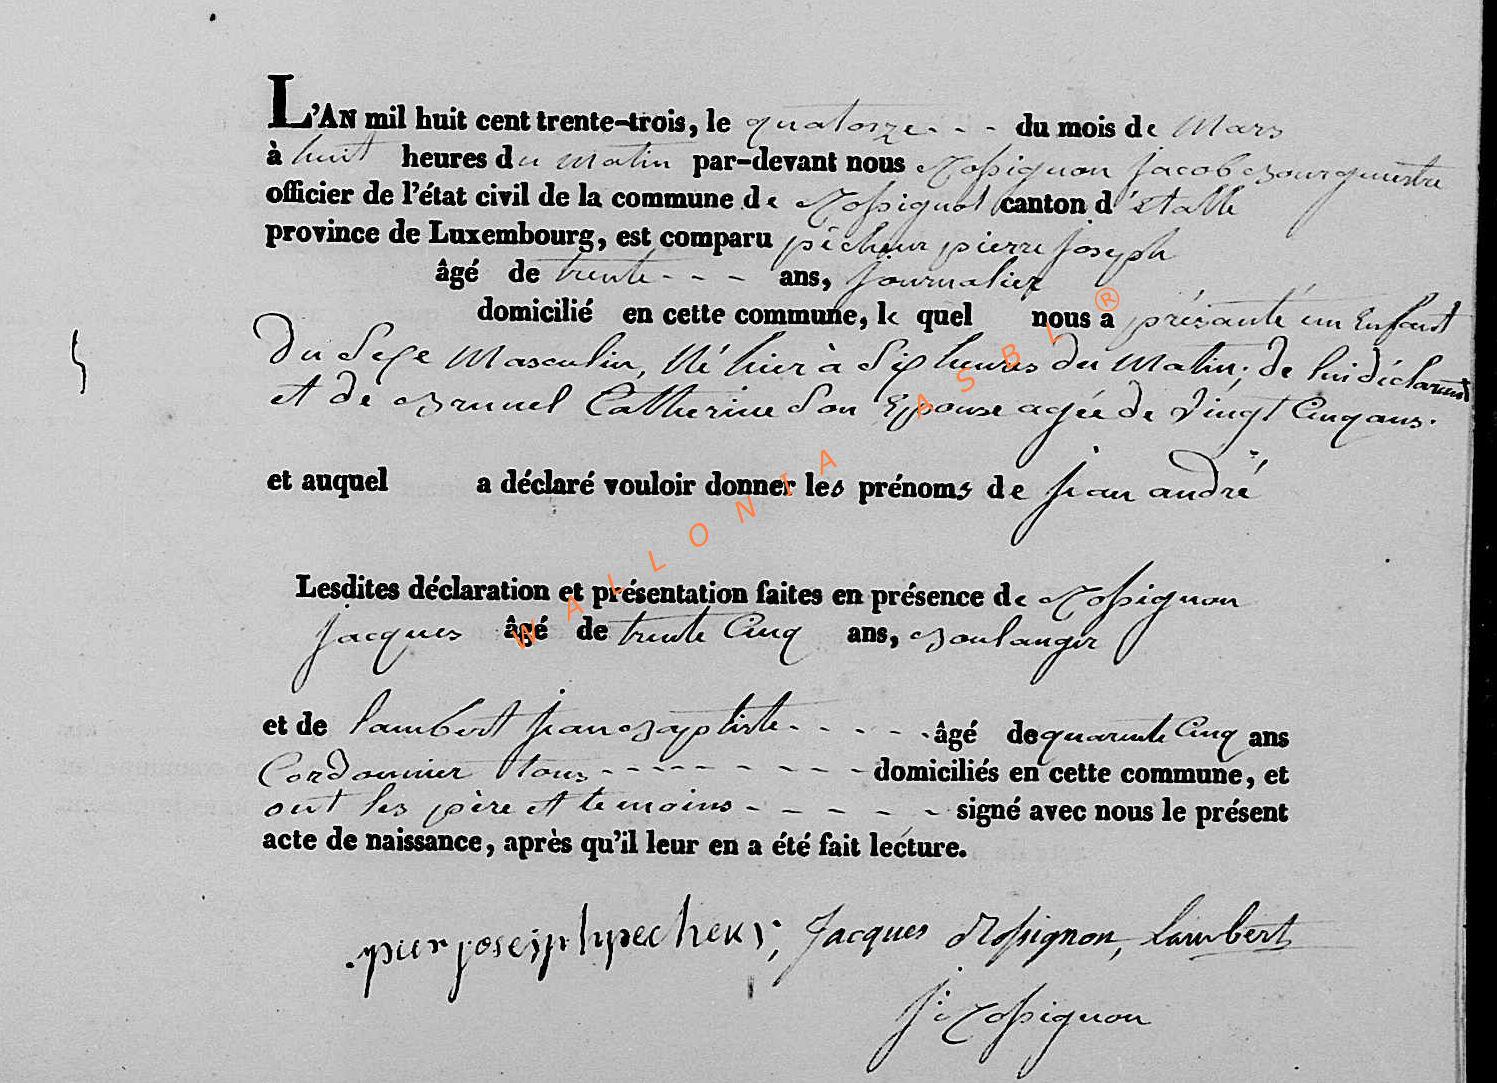 L'AN mil huit cent trente-trois, le quatorze - - - du mois de Mars
à huit heures du Matin par-devant nous Rossignon Jacob Bourguestre
officier de l'état civil de la commune de Rossignol canton d'étalle
province de Luxembourg, est comparu pêcheur pierre joseph
âgé de trente - - - ans, journalier
domicilié en cette commune, le quel nous a présanté un Enfant
du Sexe Masculin, Né hier à Six heures du Matin, de lui déclarant
et de Brunel Catherine Son Epouse agée de Vingt Cinq ans.
et auquel a déclaré vouloir donner les prénoms de jean andré
Lesdites déclaration et présentation faites en présence de Rossignon
jacques âgé de trente Cinq ans, Boulanger
et de lambert jean Baptiste - - - - - âgé de quarente Cinq ans
Cordonnier tous - - - - - - - - domiciliés en cette commune, et
ont les père et temoins - - - - - signé avec nous le présent
acte de naissance, après qu'il leur en a été fait lecture.
Jacques Rossignon, Lambert
J. Rossignon
WALLONIA ASBL ®